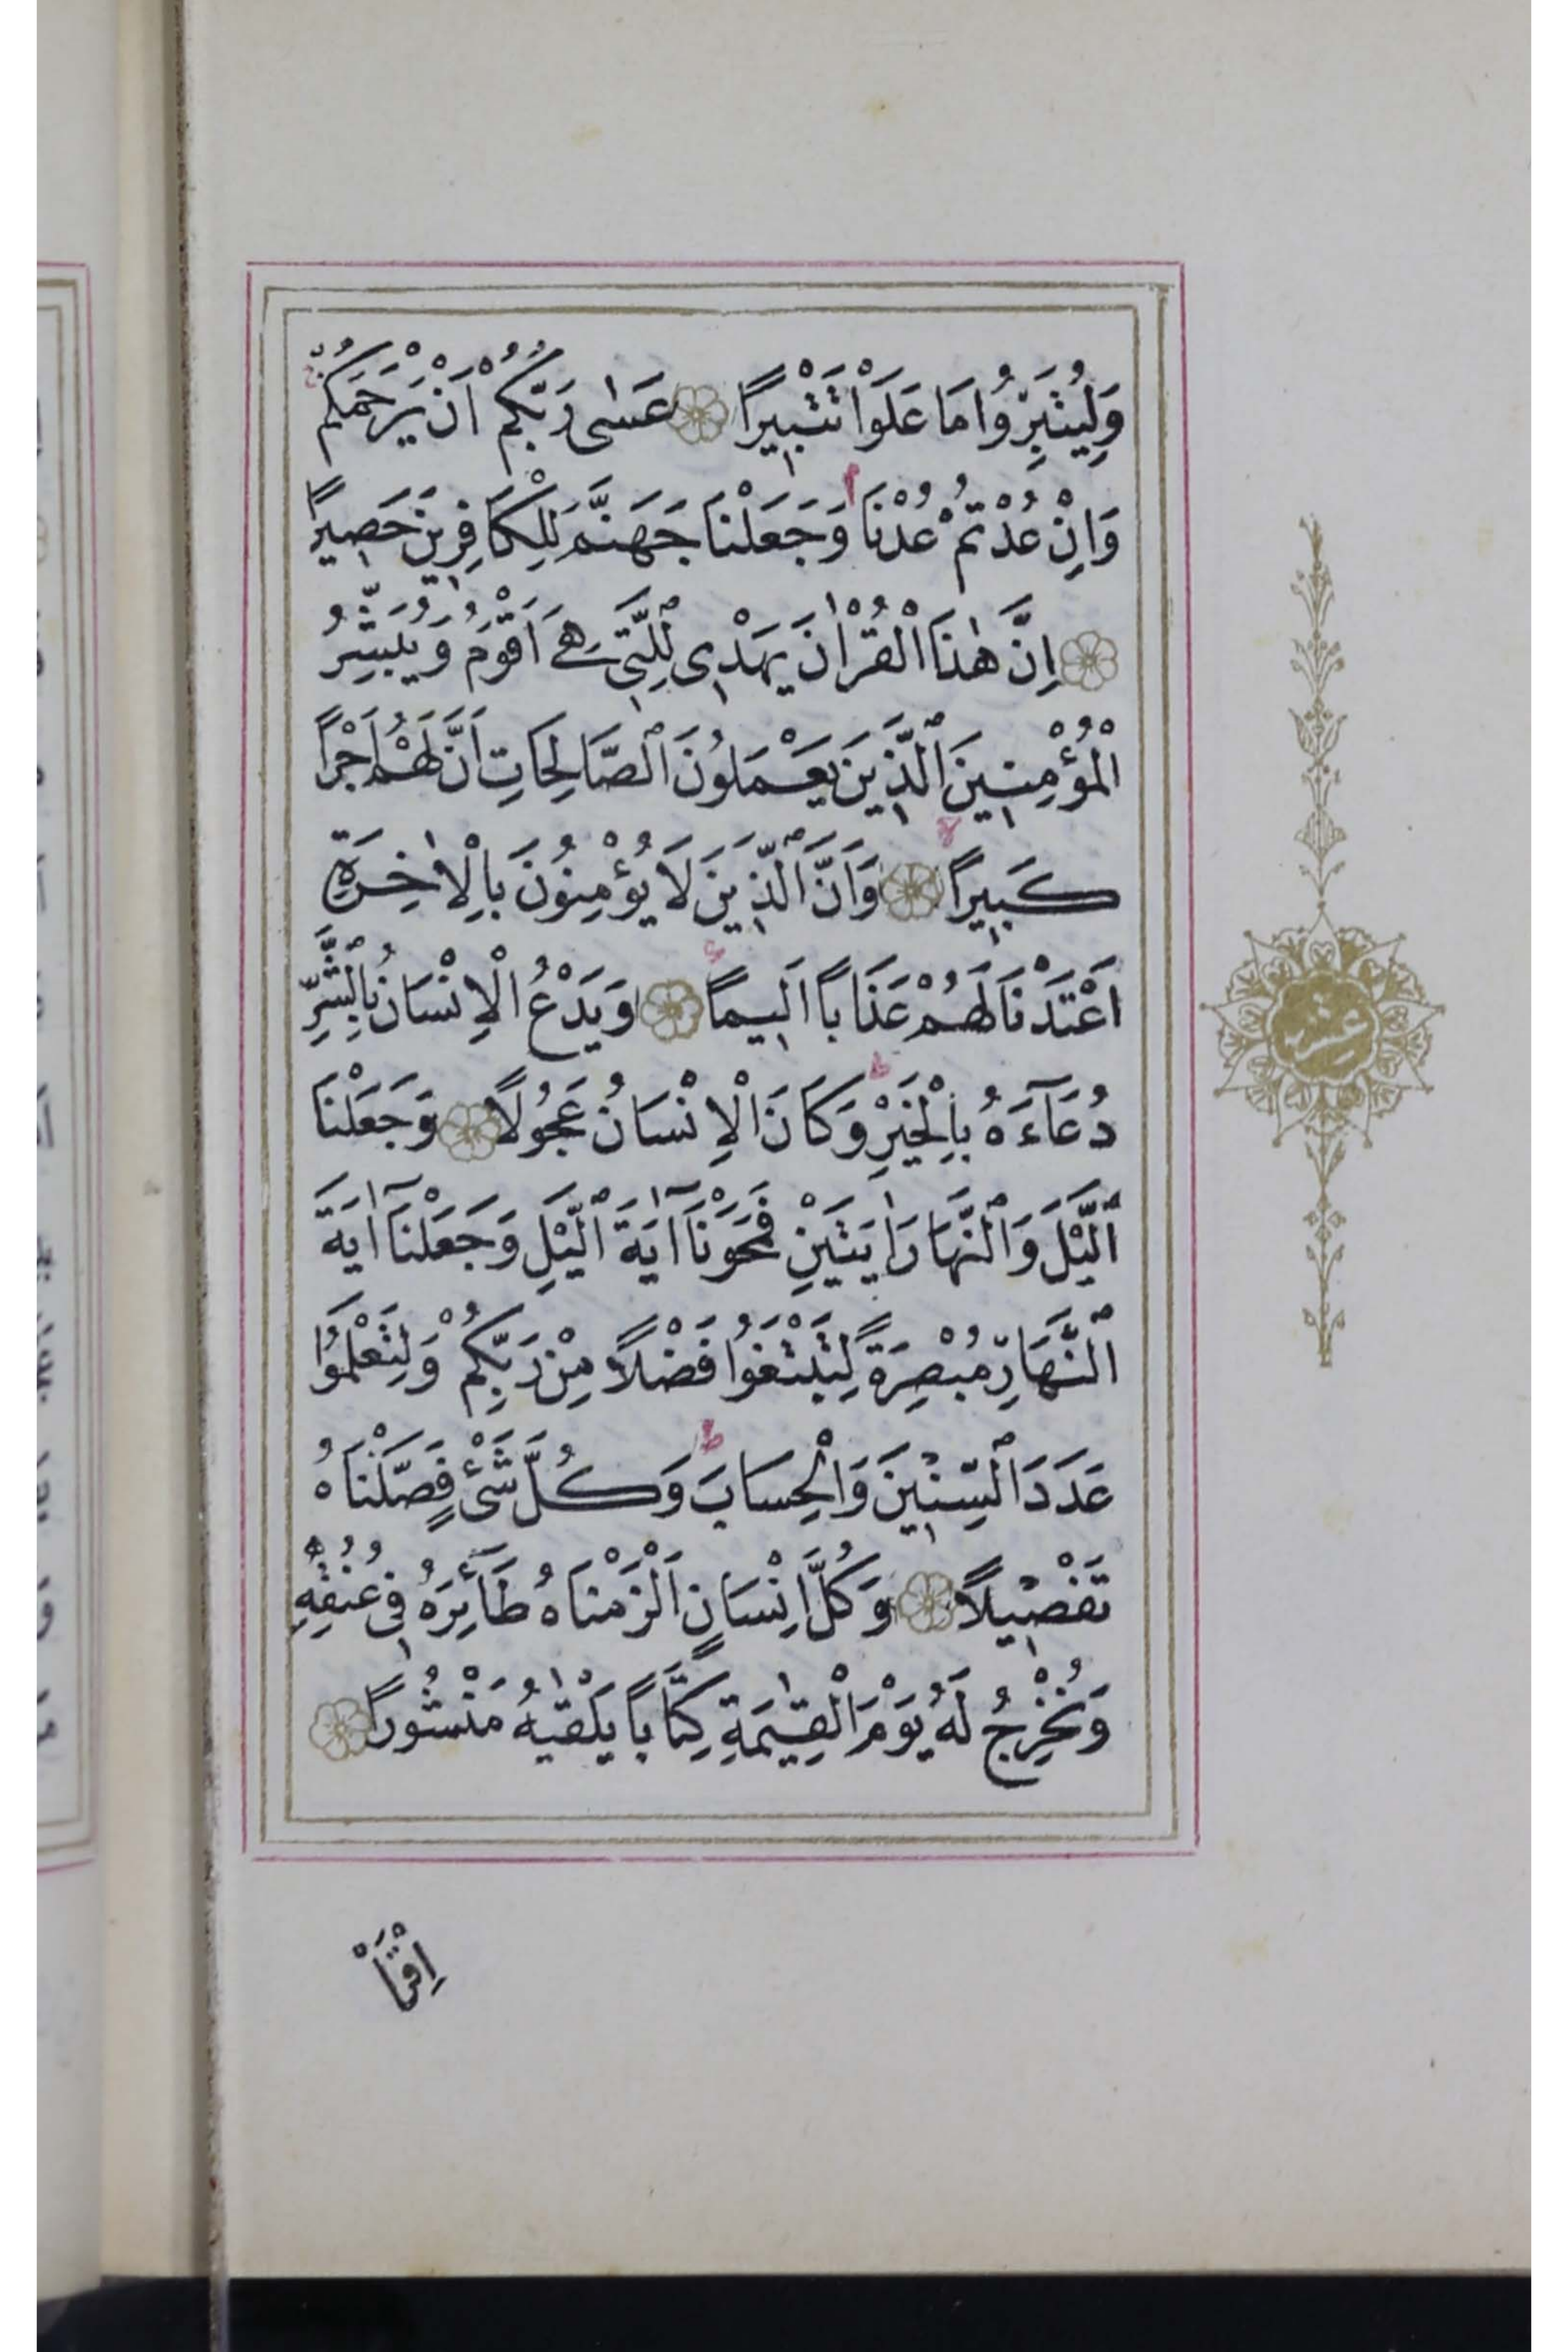 وَلِيُتَبِّرُوا مَا عَلَوْا تَتْبِيرًا عَسٰى رَبُّكُمْ اَنْ يَرْحَمَكُمْ
وَاِنْ عُدْتُمْ عُدْنَا وَجَعَلْنَا جَهَنَّمَ لِلْكَافِرِينَ حَصِيرًا
اِنَّ هٰذَا الْقُرْاٰنَ يَهْدِى لِلَّتِى هِىَ اَقْوَمُ وَيُبَشِّرُ
الْمُؤْمِنِينَ الَّذِينَ يَعْمَلُونَ الصَّالِحَاتِ اَنَّ لَهُمْ اَجْرًا
كَبِيرًا وَاَنَّ الَّذِينَ لَا يُؤْمِنُونَ بِالْاٰخِرَةِ
اَعْتَدْنَا لَهُمْ عَذَابًا اَلِيمًا وَيَدْعُ الْاِنْسَانُ بِالشَّرِّ
دُعَآءَهُ بِالْخَيْرِ وَكَانَ الْاِنْسَانُ عَجُولًا وَجَعَلْنَا
الَّيْلَ وَالنَّهَارَ اٰيَتَيْنِ فَمَحَوْنَآ اٰيَةَ الَّيْلِ وَجَعَلْنَآ اٰيَةَ
النَّهَارِ مُبْصِرَةً لِتَبْتَغُوا فَضْلًا مِنْ رَبِّكُمْ وَلِتَعْلَمُوا
عَدَدَ السِّنِينَ وَالْحِسَابَ وَكُلَّ شَىْءٍ فَصَّلْنَاهُ
تَفْصِيلًا وَكُلَّ اِنْسَانٍ اَلْزَمْنَاهُ طَآئِرَهُ فِى عُنُقِهِ
وَنُخْرِجُ لَهُ يَوْمَ الْقِيٰمَةِ كِتَابًا يَلْقٰيهُ مَنْشُورًا
اِقْرَاْ
عشر